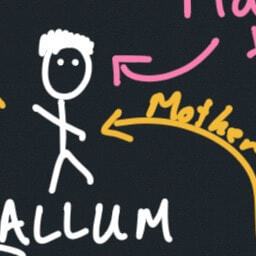 Mother
ALLUM